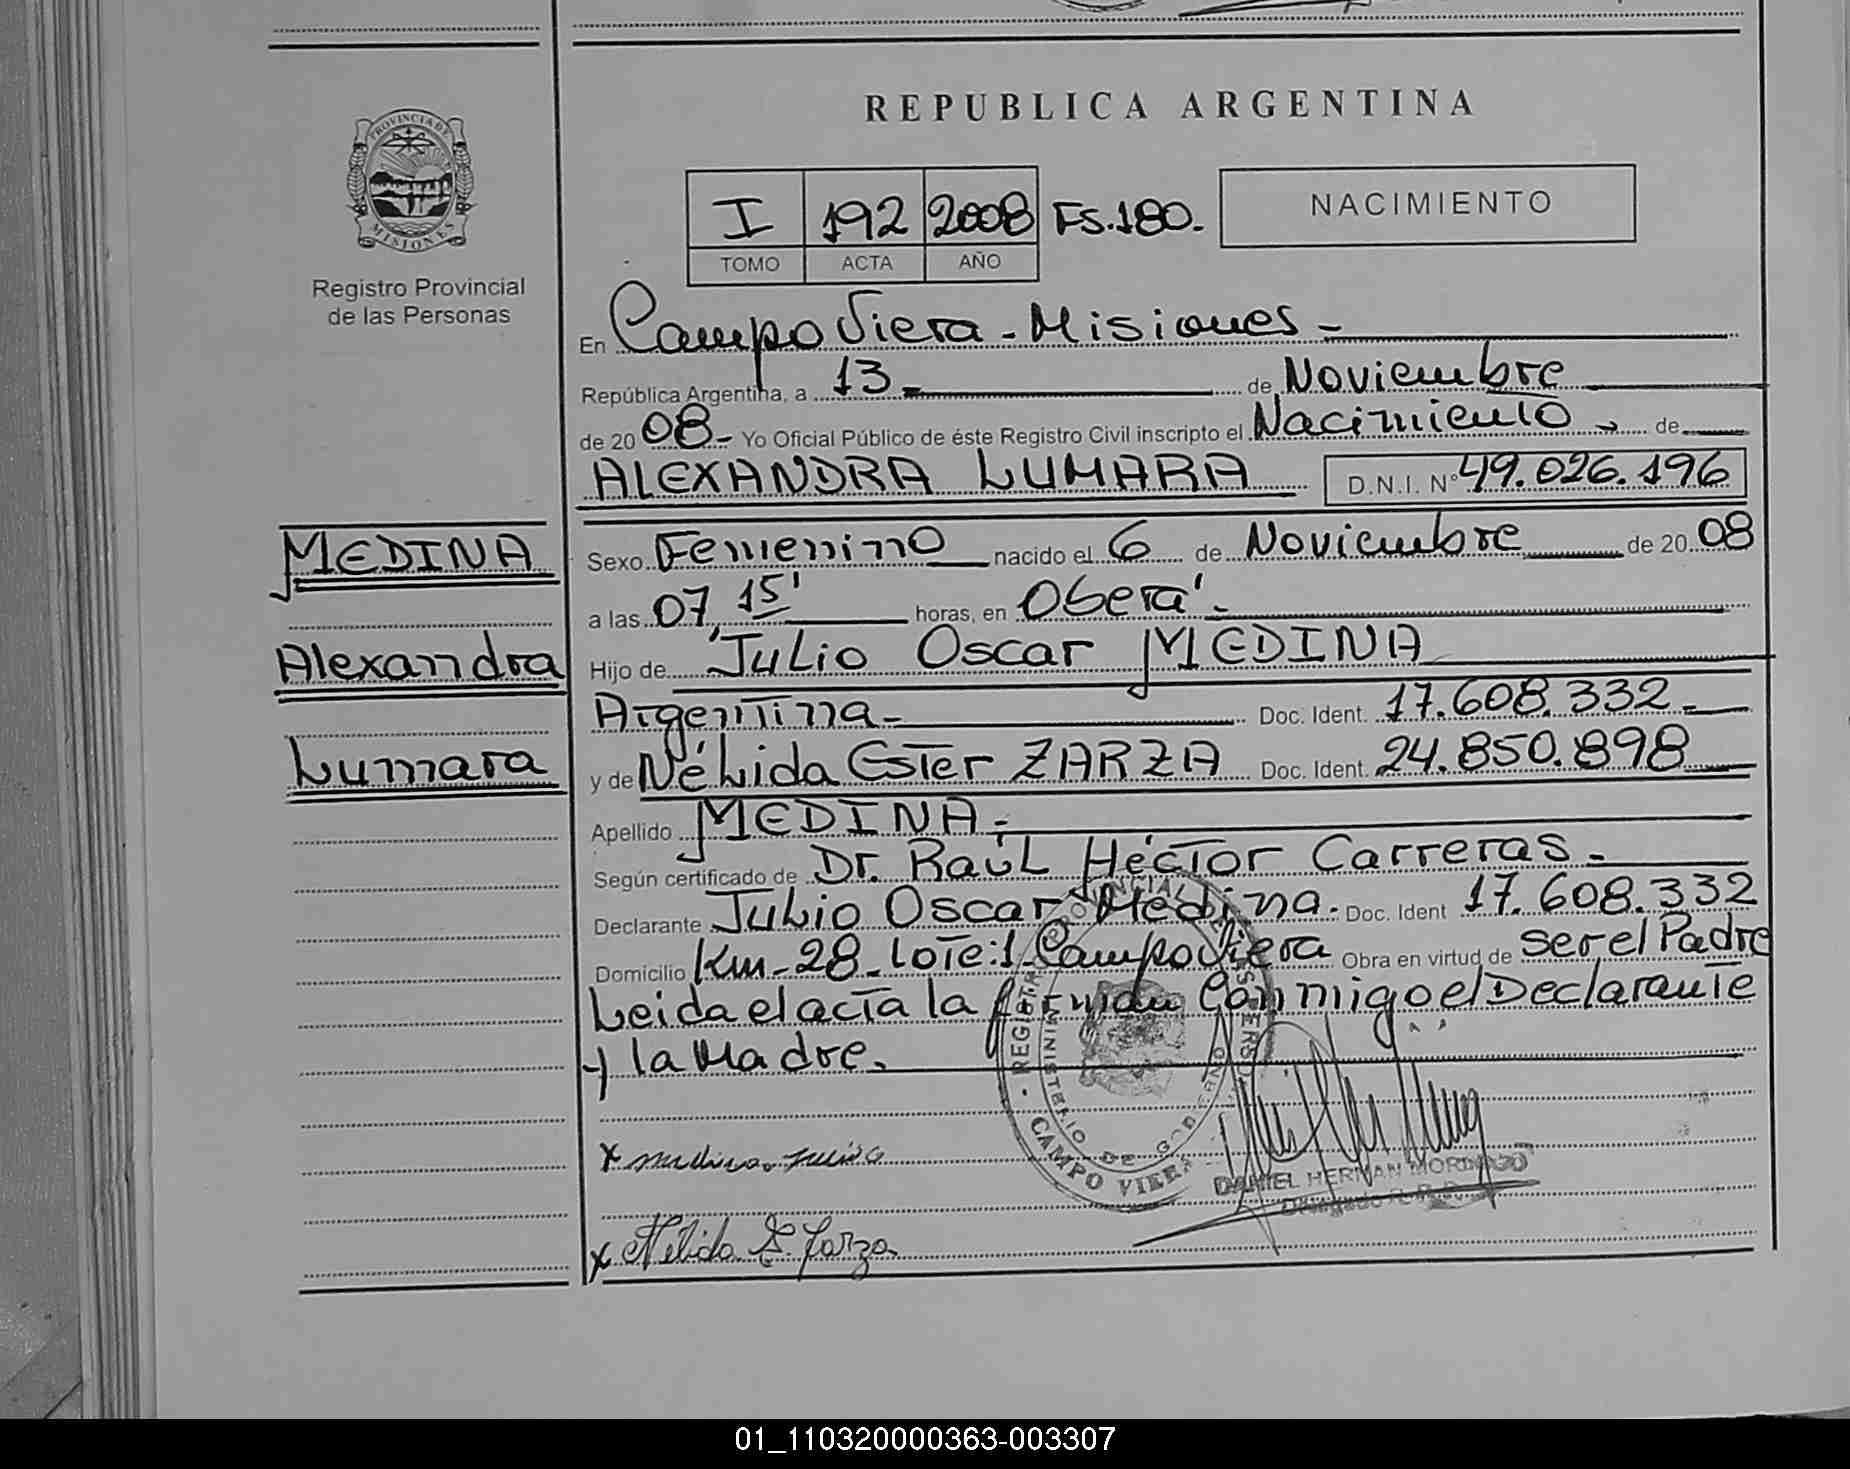 REPUBLICA ARGENTINA
PROVINCIA DE MISIONES
Registro Provincial
de las Personas
I 192 2008 FS.180.
TOMO ACTA AÑO
NACIMIENTO
En Campo Viera - Misiones -
República Argentina, a 13 de Noviembre
de 2008 - Yo Oficial Público de éste Registro Civil inscripto el Nacimiento de
ALEXANDRA LUMARA D.N.I. Nº 49.026.196
MEDINA
Alexandra
Lumara
Sexo Femenino nacido el 6 de Noviembre de 2008
a las 07,15' horas, en Oberá -
Hijo de Julio Oscar MEDINA
Argentina - Doc. Ident. 17.608.332 -
y de Nélida Ester ZARZA Doc. Ident. 24.850.898
Apellido MEDINA -
Según certificado de Dr. Raúl Héctor Carreras -
Declarante Julio Oscar Medina. Doc. Ident 17.608.332
Domicilio Km - 28 - Lote: 1 - Campo Viera Obra en virtud de ser el Padre
Leida el acta la firman Conmigo el Declarante
y la Madre.
REGISTRO PROVINCIAL DE LAS PERSONAS
MINISTERIO DE GOBIERNO
CAMPO VIERA
x medina
DANIEL HERNAN
x Nélida E. Zarza
01_110320000363-003307